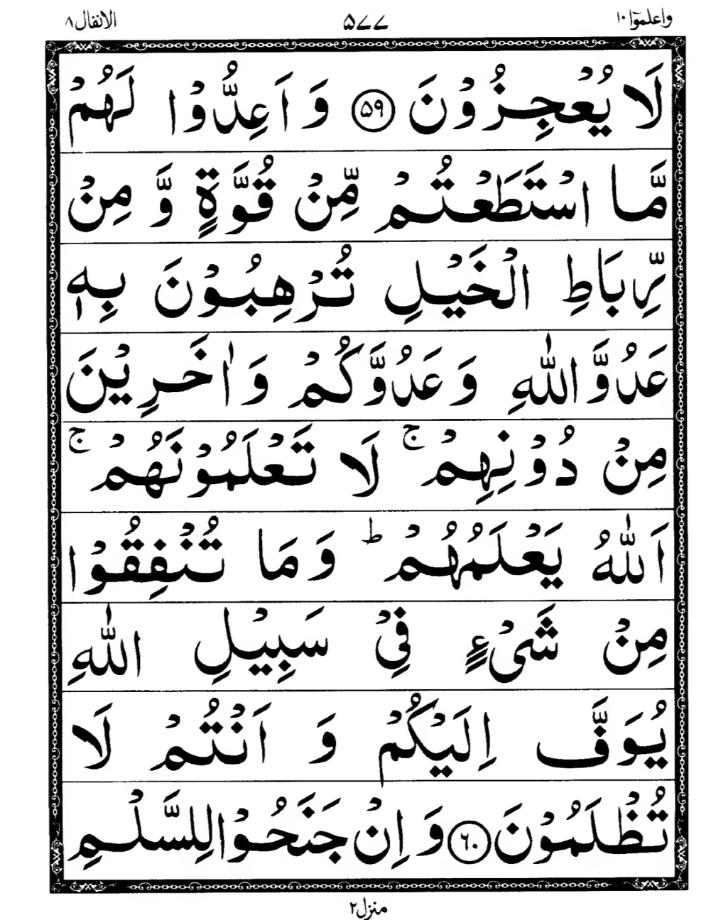 واعلموٓا ١٠ ٥٧٧ الانفال ٨
لَا يُعْجِزُوْنَ ۝٥٩ وَ اَعِدُّوْا لَهُمْ
مَّا اسْتَطَعْتُمْ مِّنْ قُوَّةٍ وَّ مِنْ
رِّبَاطِ الْخَيْلِ تُرْهِبُوْنَ بِهٖ
عَدُوَّ اللّٰهِ وَ عَدُوَّكُمْ وَ اٰخَرِيْنَ
مِنْ دُوْنِهِمْ ۚ لَا تَعْلَمُوْنَهُمْ ۚ
اَللّٰهُ يَعْلَمُهُمْ ؕ وَ مَا تُنْفِقُوْا
مِنْ شَیْءٍ فِیْ سَبِيْلِ اللّٰهِ
يُوَفَّ اِلَيْكُمْ وَ اَنْتُمْ لَا
تُظْلَمُوْنَ ۝٦٠ وَ اِنْ جَنَحُوْا لِلسَّلْمِ
منزل ٢